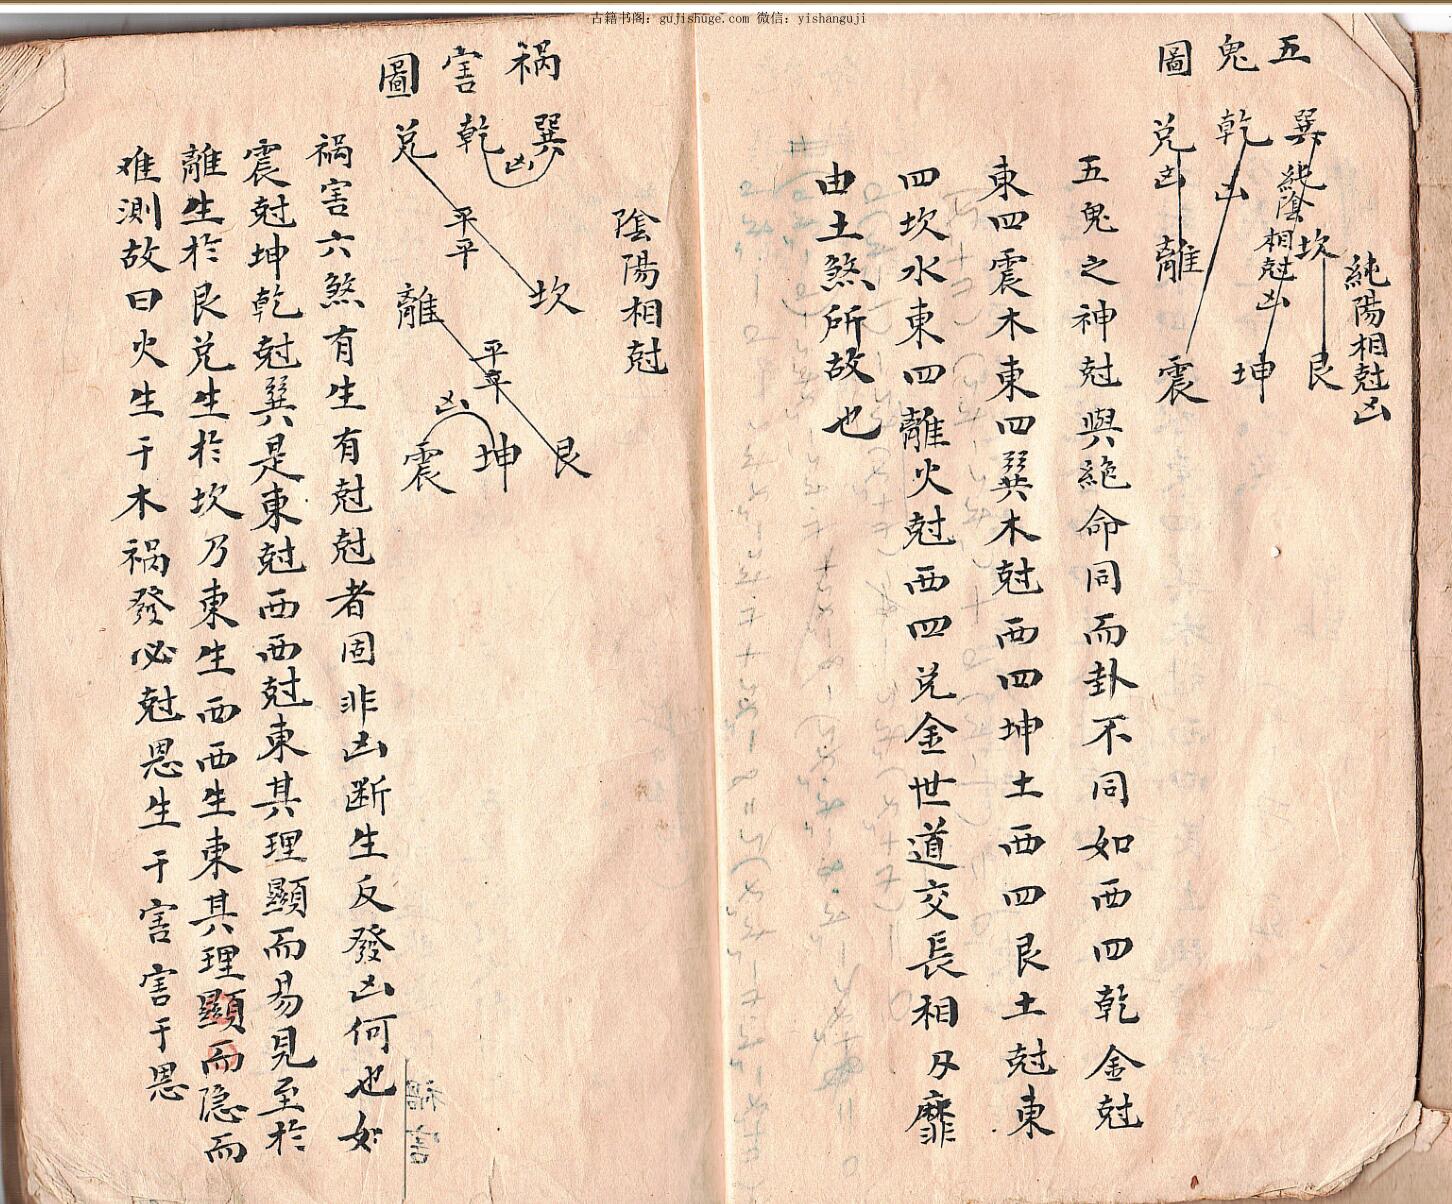 古籍书阁：gujishuge.com 微信：yishanguji
五鬼圖
巽 乾 兌
坎 離
艮 坤 震
純陽相尅凶
純陰相尅凶
凶
凶
五鬼之神尅與絶命同而卦不同如西四乾金尅
東四震木東四巽木尅西四坤土西四艮土尅東
四坎水東四離火尅西四兌金世道交長相刄靡
由土煞所故也
陰陽相尅
禍害圖
巽 乾 兌
凶
平平
坎 離
平平
凶
艮 坤 震
禍害六煞有生有尅尅者固非凶断生反發凶何也如
震尅坤乾尅巽是東尅西西尅東其理顯而易見至於
離生於艮兌生於坎乃東生西西生東其理顯而隐而
难測故曰火生于木禍發必尅恩生于害害于恩
禍害